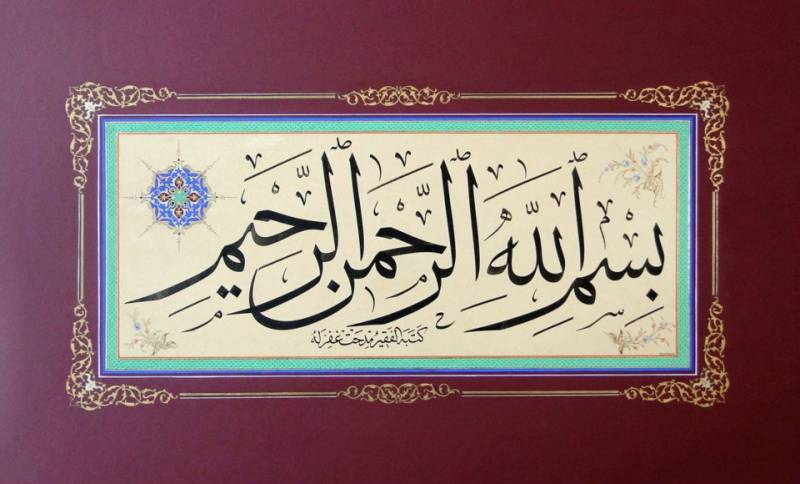 بِسْمِ اللّٰهِ الرَّحْمٰنِ الرَّحِيمِ
كتبه الفقير مدحت غفر له